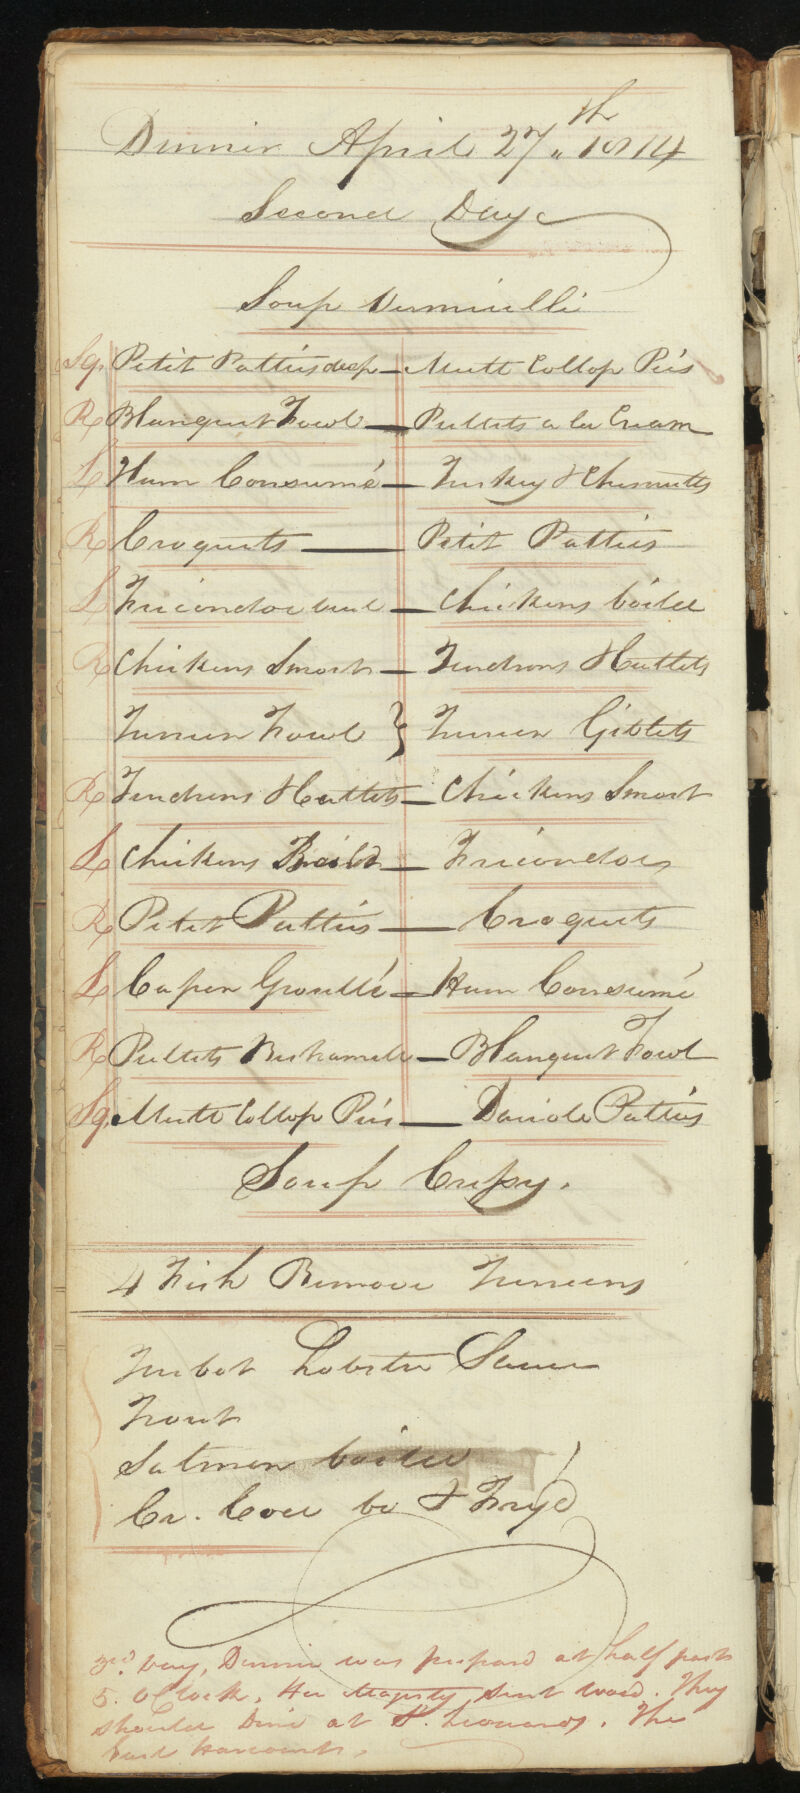 Dinner April 27th 1814
Second Day
Soup Vermicelli
Sq. Petit Patties deep — Mutt Collop Pies
R Blanquet Fowl — Pullets a la Cream
L Ham Consumé — Turkey & Chesnutts
R Croquets — Petit Patties
L Fricondoe veal — Chickens boild
R Chickens Smort — Tendrons & Cutlets
Tureen Fowl } Tureen Giblets
R Tendrons & Cutlets — Chickens Smort
L Chickens Boild — Fricondoes
R Petit Patties — Croquets
L Capon Groutté — Ham Consumé
R Pullets Bechamelle — Blanquet Fowl
Sq. Mutt Collop Pies — Dariole Patties
Soup Cressy.
4 Fish Remove Tureens
Turbot Lobster Sauce
Trout
Salmon boiled
Cr. Cod bo & Fry'd
3rd. Day, Dinner was prepard at half past
5. O'Clock, Her Majesty, Sent word. They
should Dine at St. Leonards. The
Earl Harcourts.